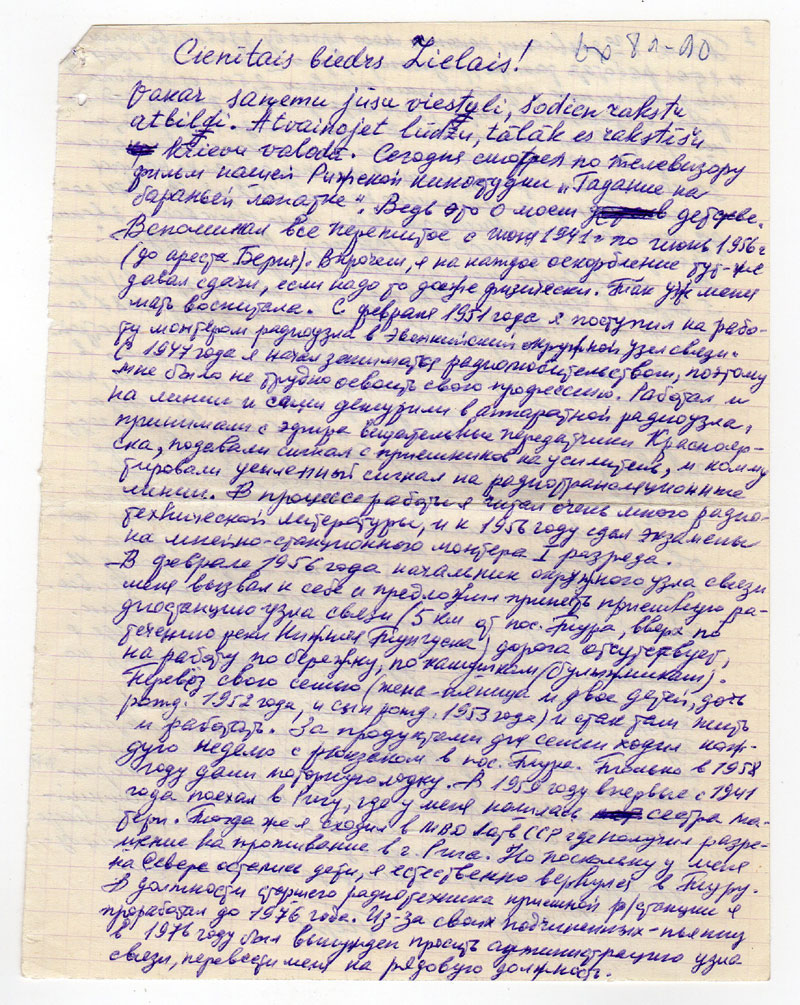 Cienītais biedrs Lielais! 8 1-90
Vakar saņemu jūsu viestuli, šodien rakstu
atbildi. Atvainojet lūdzu, tālāk es rakstišu
krievu valodā. Сегодня смотрел по телевизору
фильм нашей Рижской киностудии „Гадание на
бараньей лопатке". Ведь это о моем детстве.
Вспоминал все пережитое с июня 1941г по июнь 1956г
(до ареста Берия). Впрочем, я на каждое оскорбление тут-же
давал сдачи, если надо то даже физически. Так уж меня
мать воспитала. С февраля 1951 года я поступил на рабо-
ту монтером радиоузла в Эвенкийский окружной узел связи.
С 1947 года я начал заниматся радиолюбительством, поэтому
мне было не трудно освоить свою профессию. Работал и
на линии и сами дежурили в аппаратной радиоузла,
принимали с эфира вещательные передатчики Краснояр-
ска, подавали сигнал с приемников на усилитель, и комму
тировали усиленный сигнал на радиотрансляционные
линии. В процессе работы я читал очень много радио-
технической литературы, и к 1956 году сдал экзамены
на линейно-станционного монтера I разряда.
В феврале 1956 года начальник окружного узла связи
меня вызвал к себе и предложил принять приемную ра-
диостанцию узла связи (5 км от пос. Тура, вверх по
течению реки Нижняя Тунгуска) дорога отсутствует,
на работу по бережку, по камушкам (булыжникам).
Перевёз свою семью (жена-пяница и двое детей, дочь
рожд. 1952 года, и сын рожд. 1953 года) и стал там жить
и работать. За продуктами для семьи ходил каж-
дую неделю с рюкзаком в пос. Тура. Только в 1958
году дали моторную лодку. В 1959 году впервые с 1941
года поехал в Ригу, где у меня нашлась сестра ма-
тери. Тогда же я сходил в МВД Латв ССР где получил разре-
шение на проживание в г. Рига. Но поскольку у меня
на Севере остались дети, я естественно вернулся в Туру.
В должности старшего радиотехника приемной р/станции я
проработал до 1976 года. Из-за своих подчиненных-пьяниц
в 1976 году был вынужден просить администрацию узла
связи, перевести меня на рядовую должность.